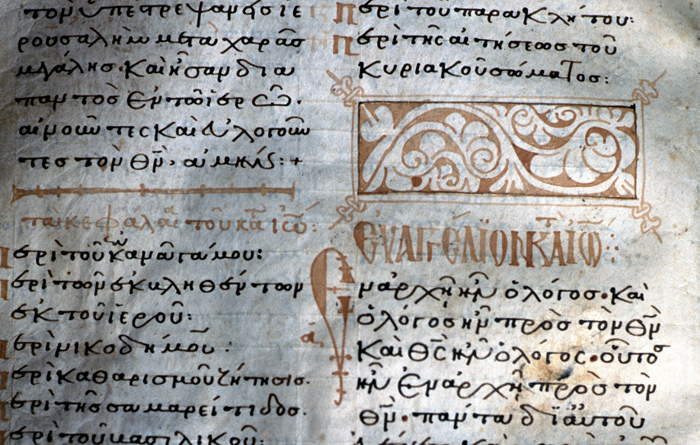 τον ὑπέστρεψαν εἰς ἱε
ρουσαλὴμ μετὰ χαρᾶσ
μεγάλης· Καὶ ἦσαν δια
παντὸς ἐν τῶ ἱερῶ·
αἰνοῦντες Καὶ εὐλογοῦν
τες τὸν θν̅· ἀμήν: +
τὰ κεφάλαια τοῦ κατὰ ἰω̅:
Περὶ τοῦ ἐν κανᾶ γάμου:
Περὶ τῶν ἐκβληθέντων
ἐκ τοῦ ἱεροῦ:
Περὶ νικοδήμου:
Περὶ Καθαρισμοῦ ζήτησις.
Περὶ τῆς σαμαρείτιδος.
Περὶ τοῦ βασιλικοῦ:
Περὶ τοῦ παραΚλήτου:
Περὶ τῆς αἰτήσεως τοῦ
Κυριακοῦ σώματος:
ΕΥΑΓΓΕΛΙΟΝ ΚΑΤ ΙΩ
α
Ἐν ἀρχῆ ἦν ὁ λόγος· Καὶ
ὁ λόγος ἦν πρὸς τὸν θν̅
Καὶ θς̅ ἦν ὁ λόγος· οὗτος
ἦν ἐν ἀρχῆ πρὸς τὸν
θν̅· πάντα δι αὐτοῦ